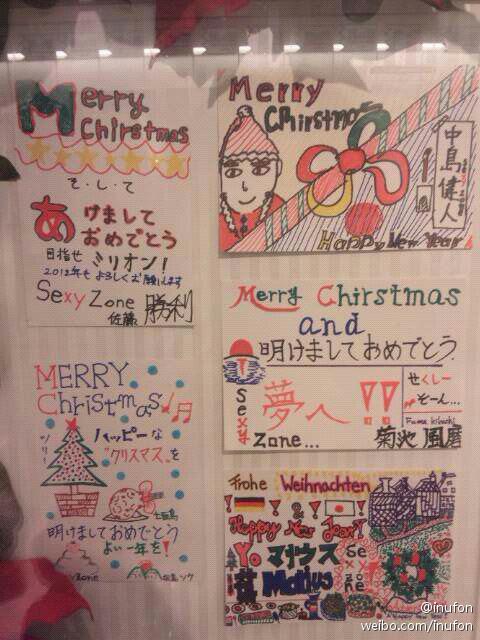 Merry
Chirstmas
そ・し・て
あけまして
おめでとう
目指せ
ミリオン!
2012年もよろしくお願いします
Sexy Zone
佐藤 勝利
Merry
Chirstmas
中島健人
Happy New Year
Merry Chirstmas
and
明けましておめでとう
Sexy
Zone...
夢へ!!
せくしー
ぞーん...
Fuma Kikuchi
菊池 風磨
MERRY
Christmas
ツリー
ハッピーな
"クリスマス"を
明けましておめでとう
よい一年を!
Frohe Weihnachten
Happy New Year!
Yo マリウス
葉 Marius
Sexy
Zone
@inufon
weibo.com/inufon